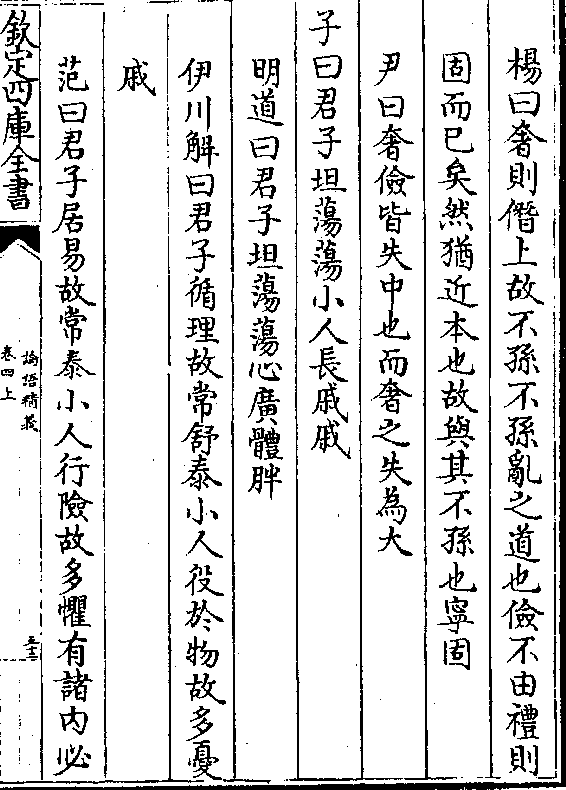 楊曰奢則僭上故不孫不孫亂之道也儉不由禮則
固而已矣然猶近本也故與其不孫也寧固
尹曰奢儉皆失中也而奢之失為大
子曰君子坦蕩蕩小人長戚戚
明道曰君子坦蕩蕩心廣體胖
伊川解曰君子循理故常舒泰小人役於物故多憂
戚
范曰君子居易故常泰小人行險故多懼有諸內必
欽定四庫全書
論語精義
卷四上